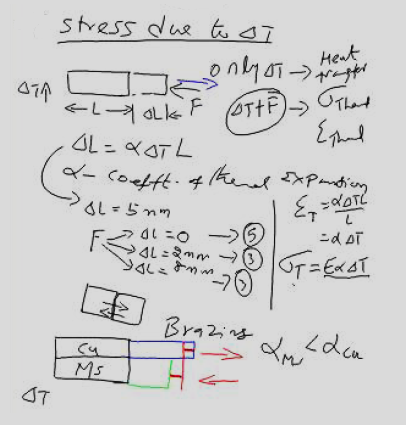 stress due to ΔT
only ΔT → Heat transfer
ΔT↑
← L → |ΔL| ← F
ΔT + F → σThermal
εThermal
ΔL = α ΔT L
α - coefft. of thermal Expansion
ΔL = 5 mm
F → ΔL = 0 → 5
→ ΔL = 2mm → 3
→ ΔL = 8mm → 3
εT = αΔTL / L
= α ΔT
σT = EαΔT
Brazing
Cu
Ms
αM < αCu
ΔT